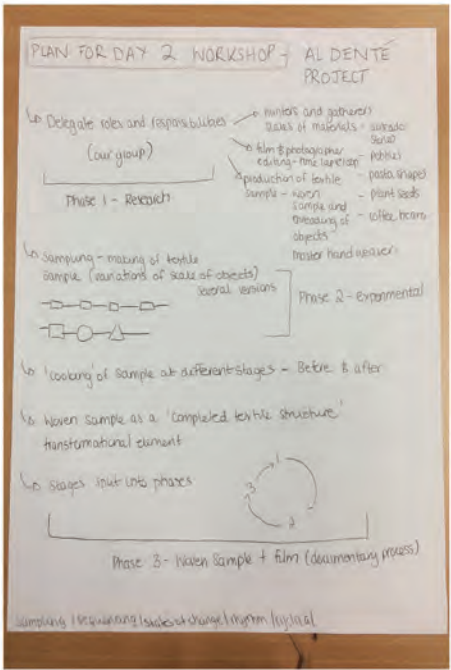 PLAN FOR DAY 2 WORKSHOP - AL DENTÉ
PROJECT
Delegate roles and responsibilities
(our group)
Phase 1 - Research
hunters and gatherers
of materials -
film & photographer
editing - time lapse
production of textile
sample - woven
sample and
threading of
objects
master hand weavers
pebbles
pasta shapes
plant seeds
coffee beans
Sampling - making of textile
sample (variations of scale of objects)
several versions
Phase 2 - experimental
'cooking' of sample at different stages - Before & after
Woven sample as a 'completed textile structure'
transformational element
Stages split into phases
1
2
3
Phase 3 - Woven Sample + film (documentary process)
sampling / sequencing / scales of change / rhythm / cyclical